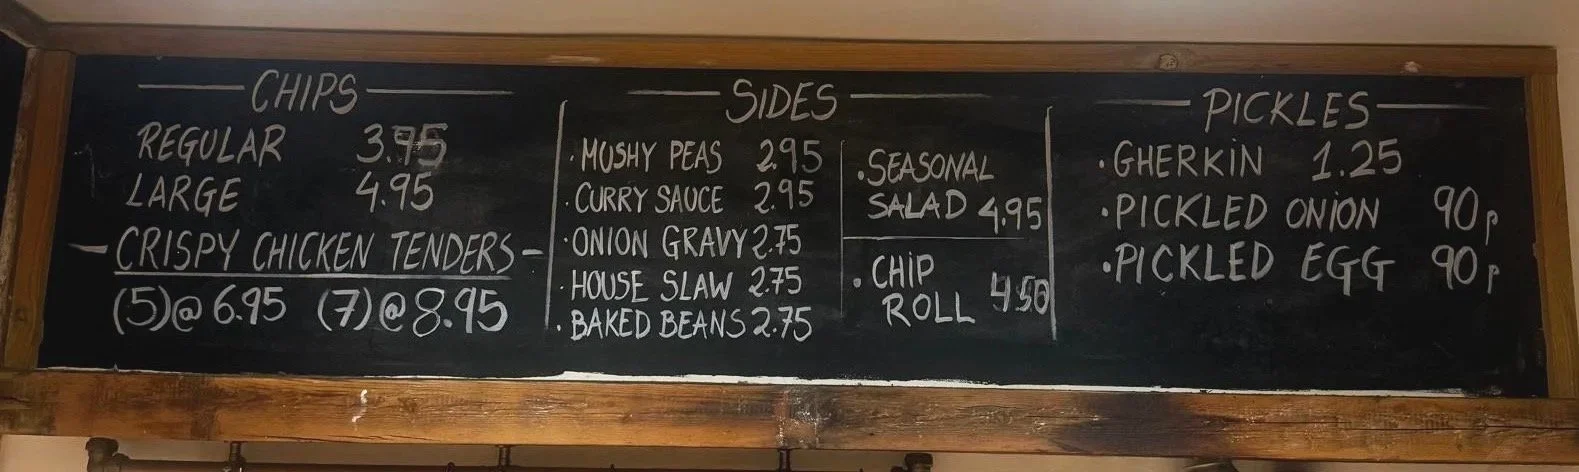 CHIPS
REGULAR 3.95
LARGE 4.95
CRISPY CHICKEN TENDERS
(5)@ 6.95 (7)@ 8.95
SIDES
· MUSHY PEAS 2.95
· CURRY SAUCE 2.95
· ONION GRAVY 2.75
· HOUSE SLAW 2.75
· BAKED BEANS 2.75
· SEASONAL
SALAD 4.95
· CHIP
ROLL 4.50
PICKLES
· GHERKiN 1.25
· PICKLED ONiON 90p
· PICKLED EGG 90p